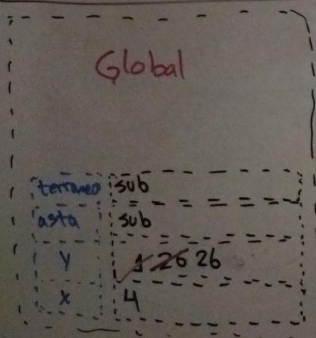 Global
terraneo sub
asta sub
y 1 26 26
x 4